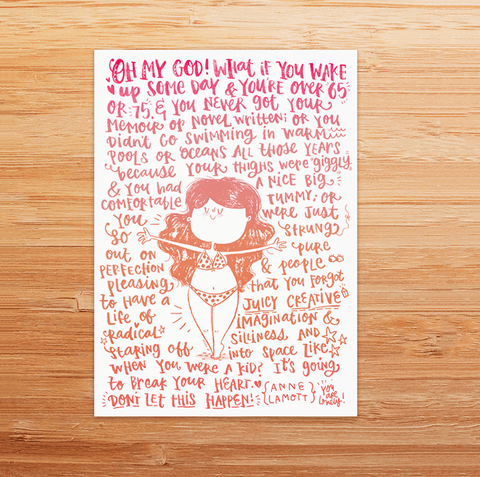 OH MY GOD! WHAT IF YOU WAKE
up SOME DAY & YOU'RE OVER 65
OR 75, & YOU NEVER GOT YOUR
MEMOIR OR NOVEL WRITTEN; OR YOU
DIDN'T GO SWIMMING IN WARM
POOLS OR OCEANS ALL THOSE YEARS
because YOUR THIGHS WERE giggly
& YOU HAD A NICE BIG
COMFORTABLE TUMMY; OR
YOU WERE JUST
SO STRUNG
OUT ON PURE
PERFECTION & PEOPLE
pleasing that YOU FORGOT
to HAVE A JUICY CREATIVE
LIFE OF IMAGINATION &
RADICAL SILLINESS AND
STARING OFF INTO SPACE LIKE
WHEN YOU WERE A KID? IT'S GOING
to BREAK YOUR HEART.
DON'T LET THIS HAPPEN!
{ANNE
LAMOTT}
YOU
are
Lovely!